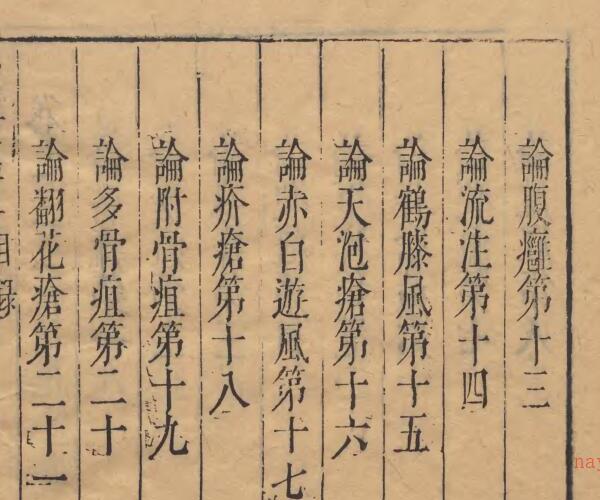 論腹癰第十三
論流注第十四
論鶴膝風第十五
論天泡瘡第十六
論赤白遊風第十七
論疥瘡第十八
論附骨疽第十九
論多骨疽第二十
論翻花瘡第二十一
目録
nay